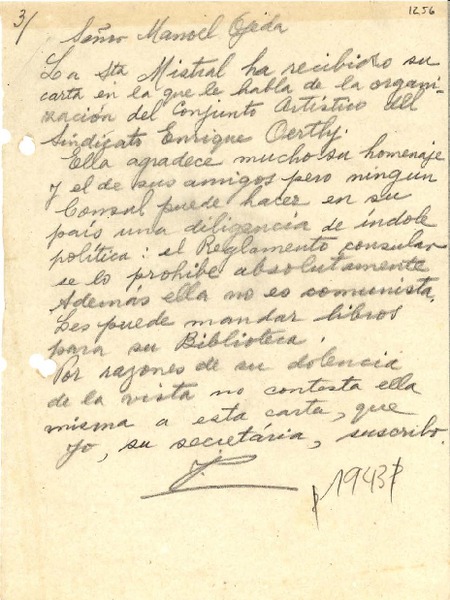 3/
1256
Señor Manoel Ojeda
La Sta Mistral ha recibido su
carta en la que le habla de la organi-
zación del Conjunto Artístico del
Sindicato Enrique Oertly.
Ella agradece mucho su homenaje
y el de sus amigos pero ningún
Consul puede hacer en su
país una diligencia de índole
política: el Reglamento consular
se lo prohibe absolutamente
Además ella no es comunista.
Les puede mandar libros
para su Biblioteca
Por razones de su dolencia
de la vista no contesta ella
misma a esta carta, que
yo, su secretária, suscribo.
1943